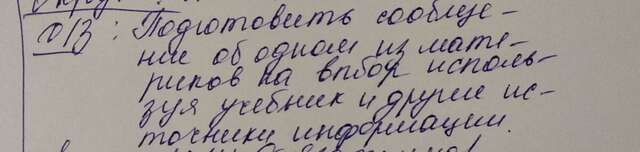 д/з: Подготовить сообще-
ние об одном из мате-
риков на выбор исполь-
зуя учебник и другие ис-
точники информации.